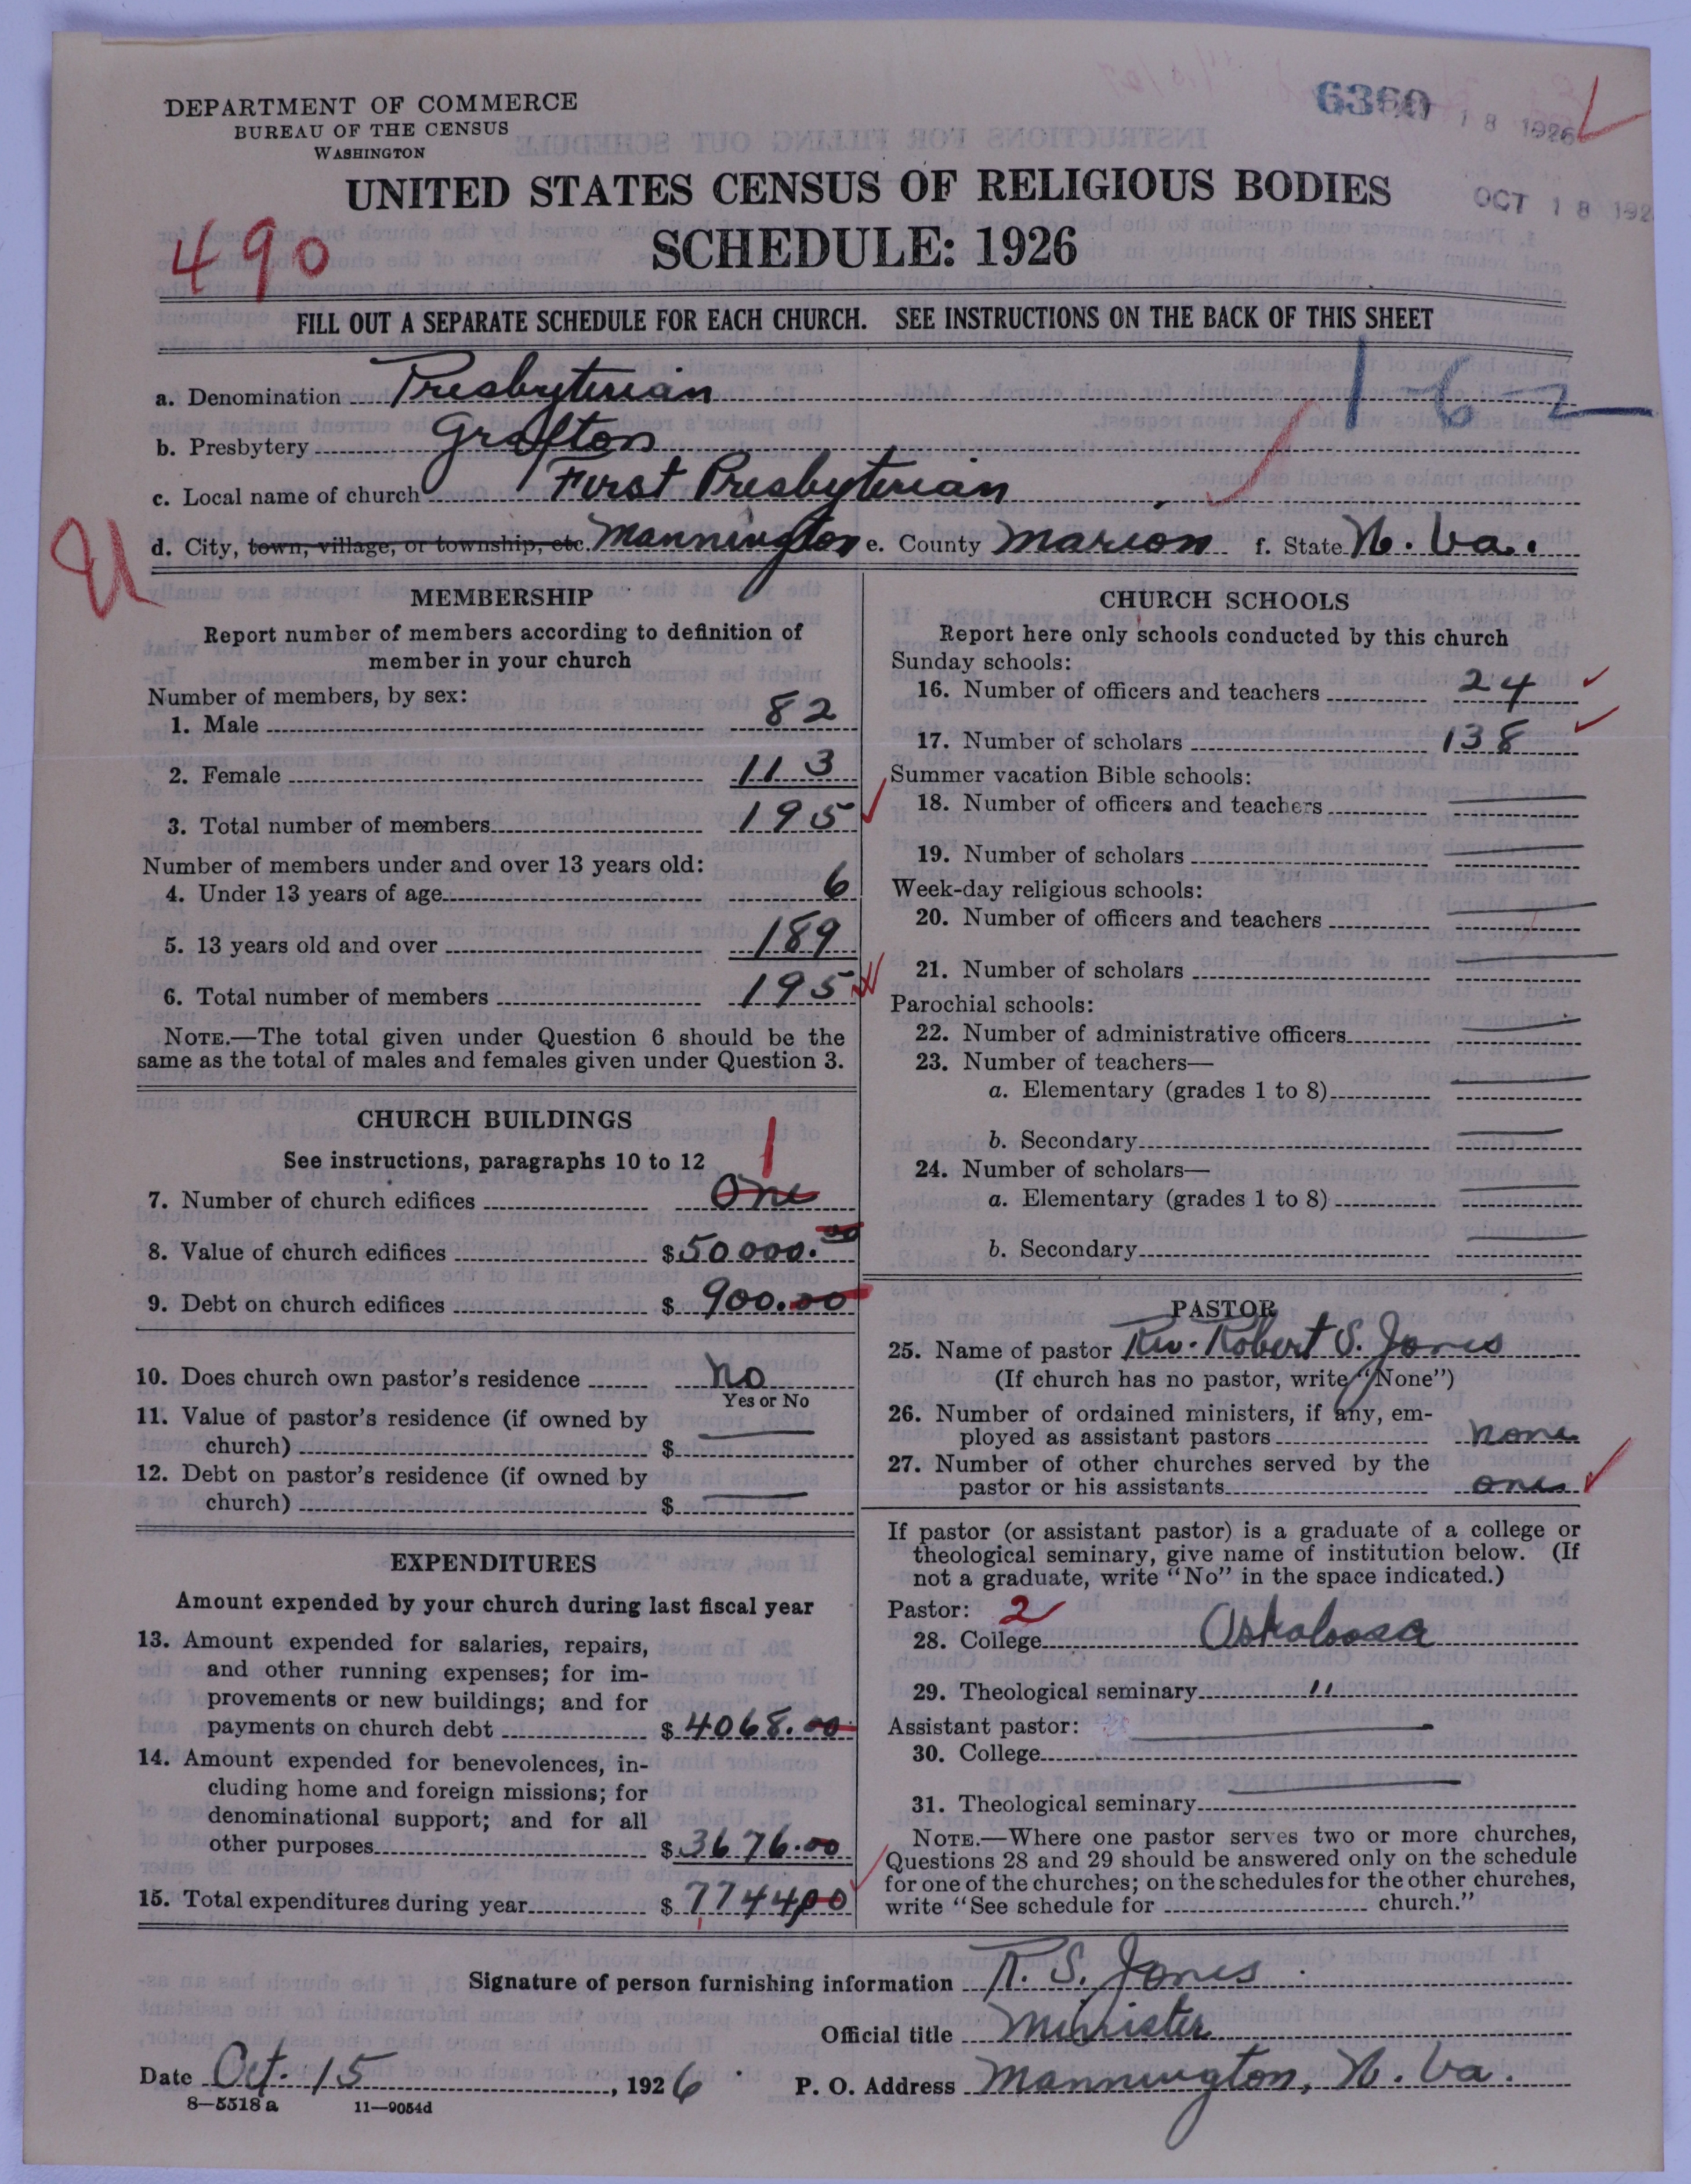 DEPARTMENT OF COMMERCE
BUREAU OF THE CENSUS
WASHINGTON
6360 18 1926
OCT 18 192
UNITED STATES CENSUS OF RELIGIOUS BODIES
490
SCHEDULE: 1926
FILL OUT A SEPARATE SCHEDULE FOR EACH CHURCH. SEE INSTRUCTIONS ON THE BACK OF THIS SHEET
1-6-2
a. Denomination Presbyterian
b. Presbytery Grafton
c. Local name of church First Presbyterian
d. City, town, village, or township, etc. Mannington e. County Marion f. State W. Va.
MEMBERSHIP
Report number of members according to definition of
member in your church
Number of members, by sex:
1. Male 82
2. Female 113
3. Total number of members 195
Number of members under and over 13 years old:
4. Under 13 years of age 6
5. 13 years old and over 189
6. Total number of members 195
NOTE.—The total given under Question 6 should be the
same as the total of males and females given under Question 3.
CHURCH BUILDINGS
See instructions, paragraphs 10 to 12
1
7. Number of church edifices One
8. Value of church edifices $50000.00
9. Debt on church edifices $ 900.00
10. Does church own pastor's residence no
Yes or No
11. Value of pastor's residence (if owned by
church) $
12. Debt on pastor's residence (if owned by
church) $
EXPENDITURES
Amount expended by your church during last fiscal year
13. Amount expended for salaries, repairs,
and other running expenses; for im-
provements or new buildings; and for
payments on church debt $ 4068.00
14. Amount expended for benevolences, in-
cluding home and foreign missions; for
denominational support; and for all
other purposes $ 3676.00
15. Total expenditures during year $ 7744.00
CHURCH SCHOOLS
Report here only schools conducted by this church
Sunday schools:
16. Number of officers and teachers 24
17. Number of scholars 138
Summer vacation Bible schools:
18. Number of officers and teachers
19. Number of scholars
Week-day religious schools:
20. Number of officers and teachers
21. Number of scholars
Parochial schools:
22. Number of administrative officers
23. Number of teachers—
a. Elementary (grades 1 to 8)
b. Secondary
24. Number of scholars—
a. Elementary (grades 1 to 8)
b. Secondary
PASTOR
25. Name of pastor Rev. Robert S. Jones
(If church has no pastor, write "None")
26. Number of ordained ministers, if any, em-
ployed as assistant pastors none
27. Number of other churches served by the
pastor or his assistants one
If pastor (or assistant pastor) is a graduate of a college or
theological seminary, give name of institution below. (If
not a graduate, write "No" in the space indicated.)
Pastor: 2
28. College Oskaloosa
29. Theological seminary "
Assistant pastor:
30. College
31. Theological seminary
NOTE.—Where one pastor serves two or more churches,
Questions 28 and 29 should be answered only on the schedule
for one of the churches; on the schedules for the other churches,
write "See schedule for church."
Signature of person furnishing information R. S. Jones
Official title Minister
Date Oct. 15, 1926 P. O. Address Mannington, W. Va.
8—5518 a 11—9054d